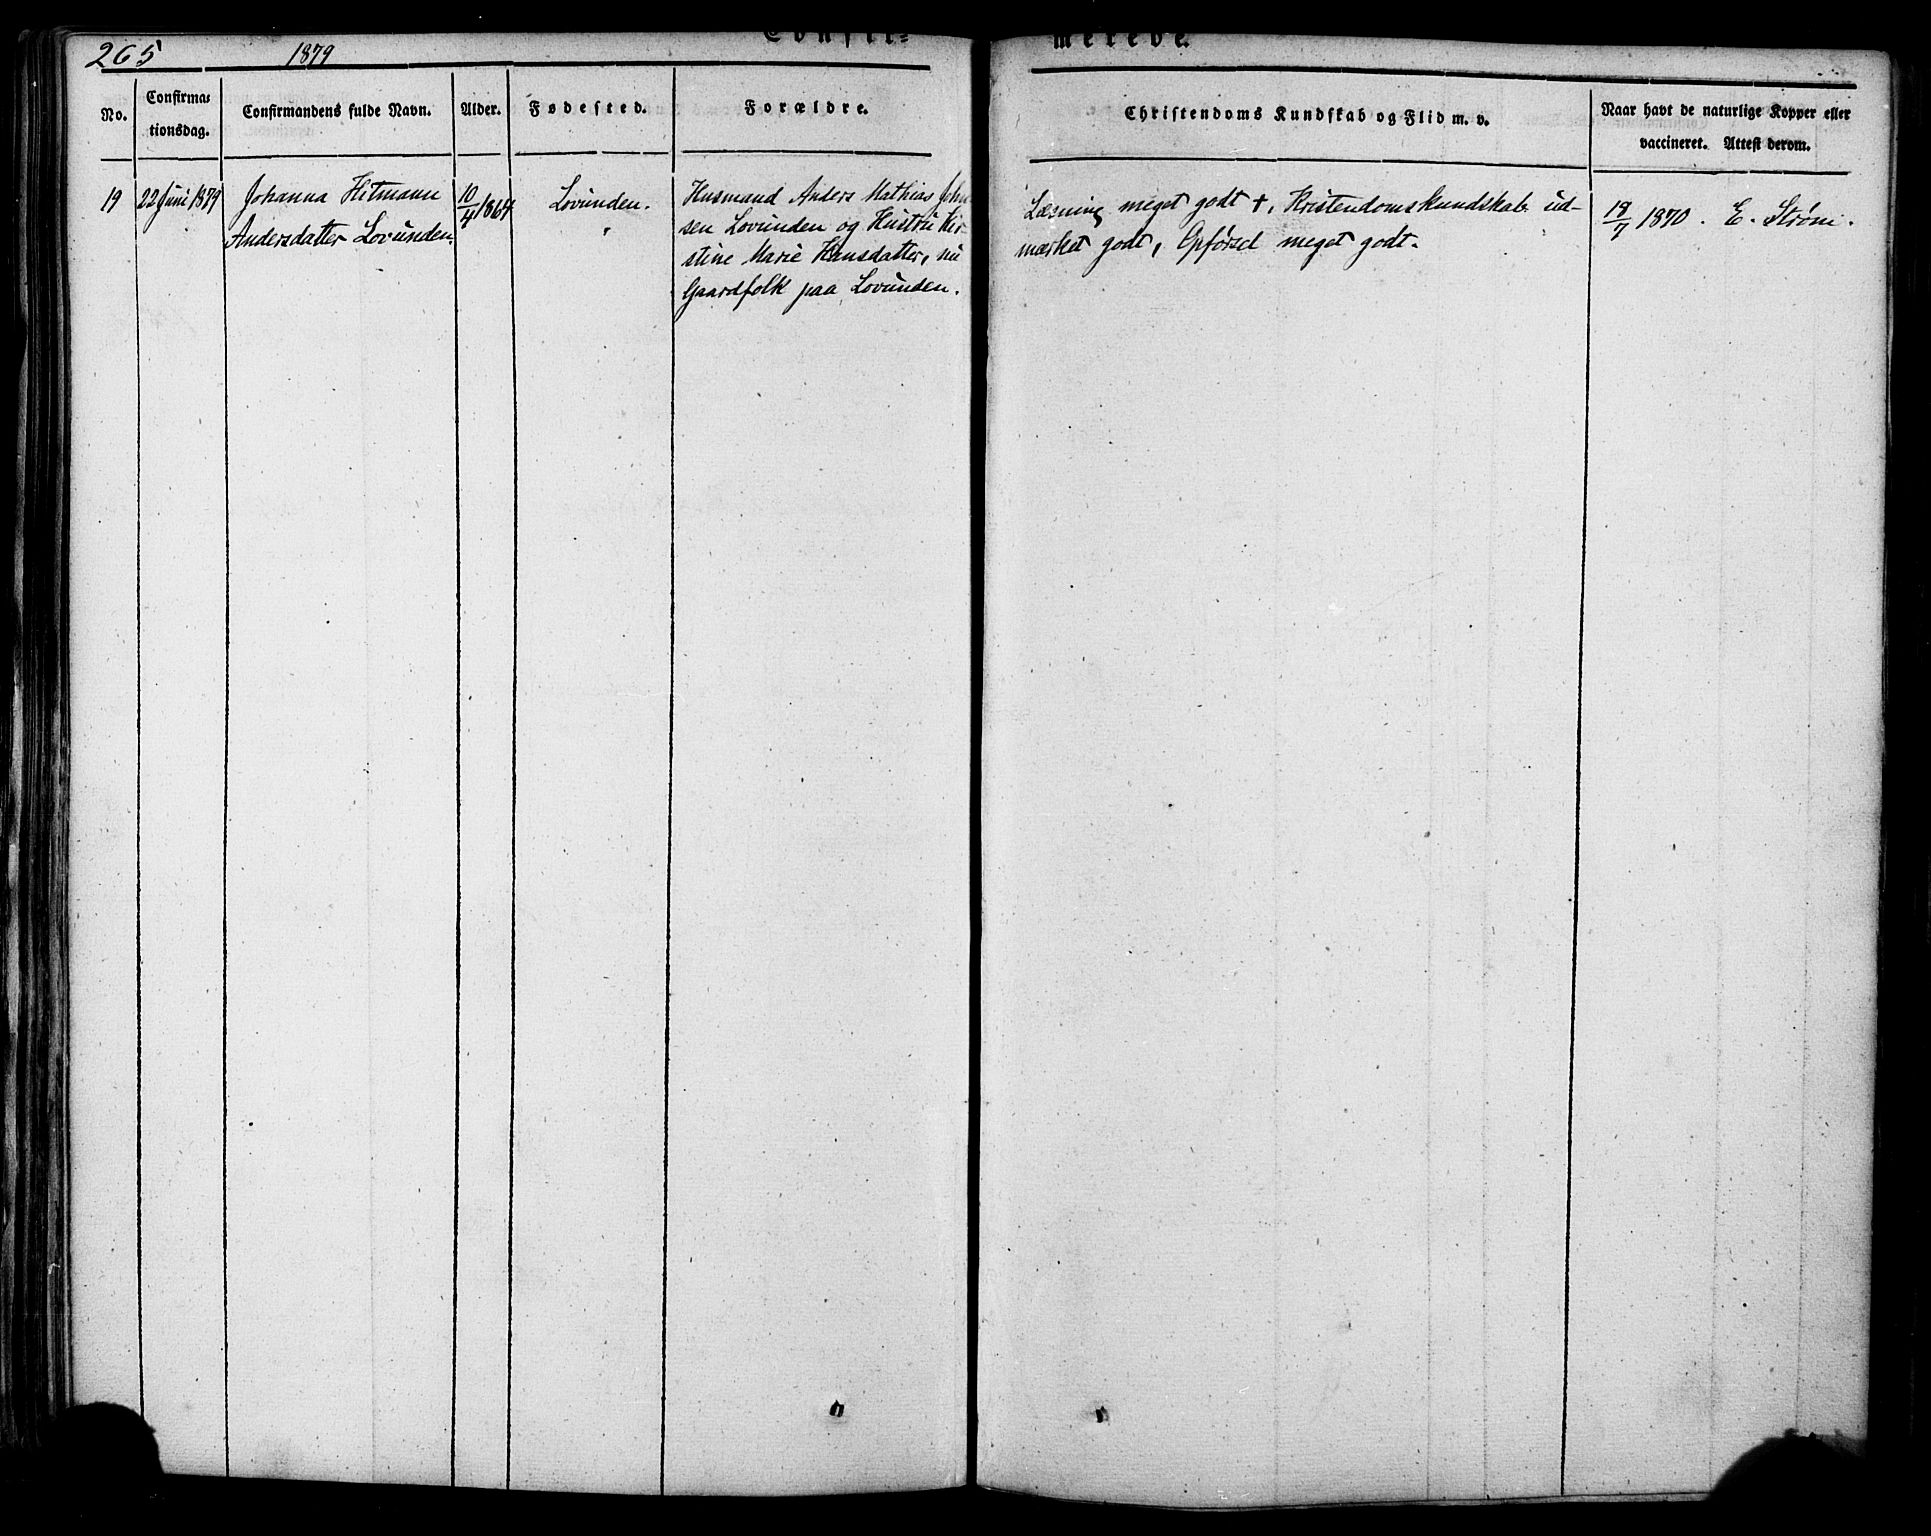 265
1879
Confir=
merede.
No.
Confirma=
tionsdag.
Confirmandens fulde Navn.
Alder.
Fødested.
Forældre.
Christendoms Kundskab og Flid m. v.
Naar havt de naturlige Kopper eller
vaccineret. Attest derom.
19
22 Juni 1879
Johanna Hitmann
Andersdatter Lovunden.
10/4 1864
Lovunden.
Husmand Anders Mathias Johan
sen Lovunden og Hustru Kir-
stine Marie Hansdatter, nu
Gaardfolk paa Lovunden.
Læsning meget godt +, Kristendomskundskab ud-
mærket godt, Opførsel meget godt.
18/7 1870. E. Strøm.